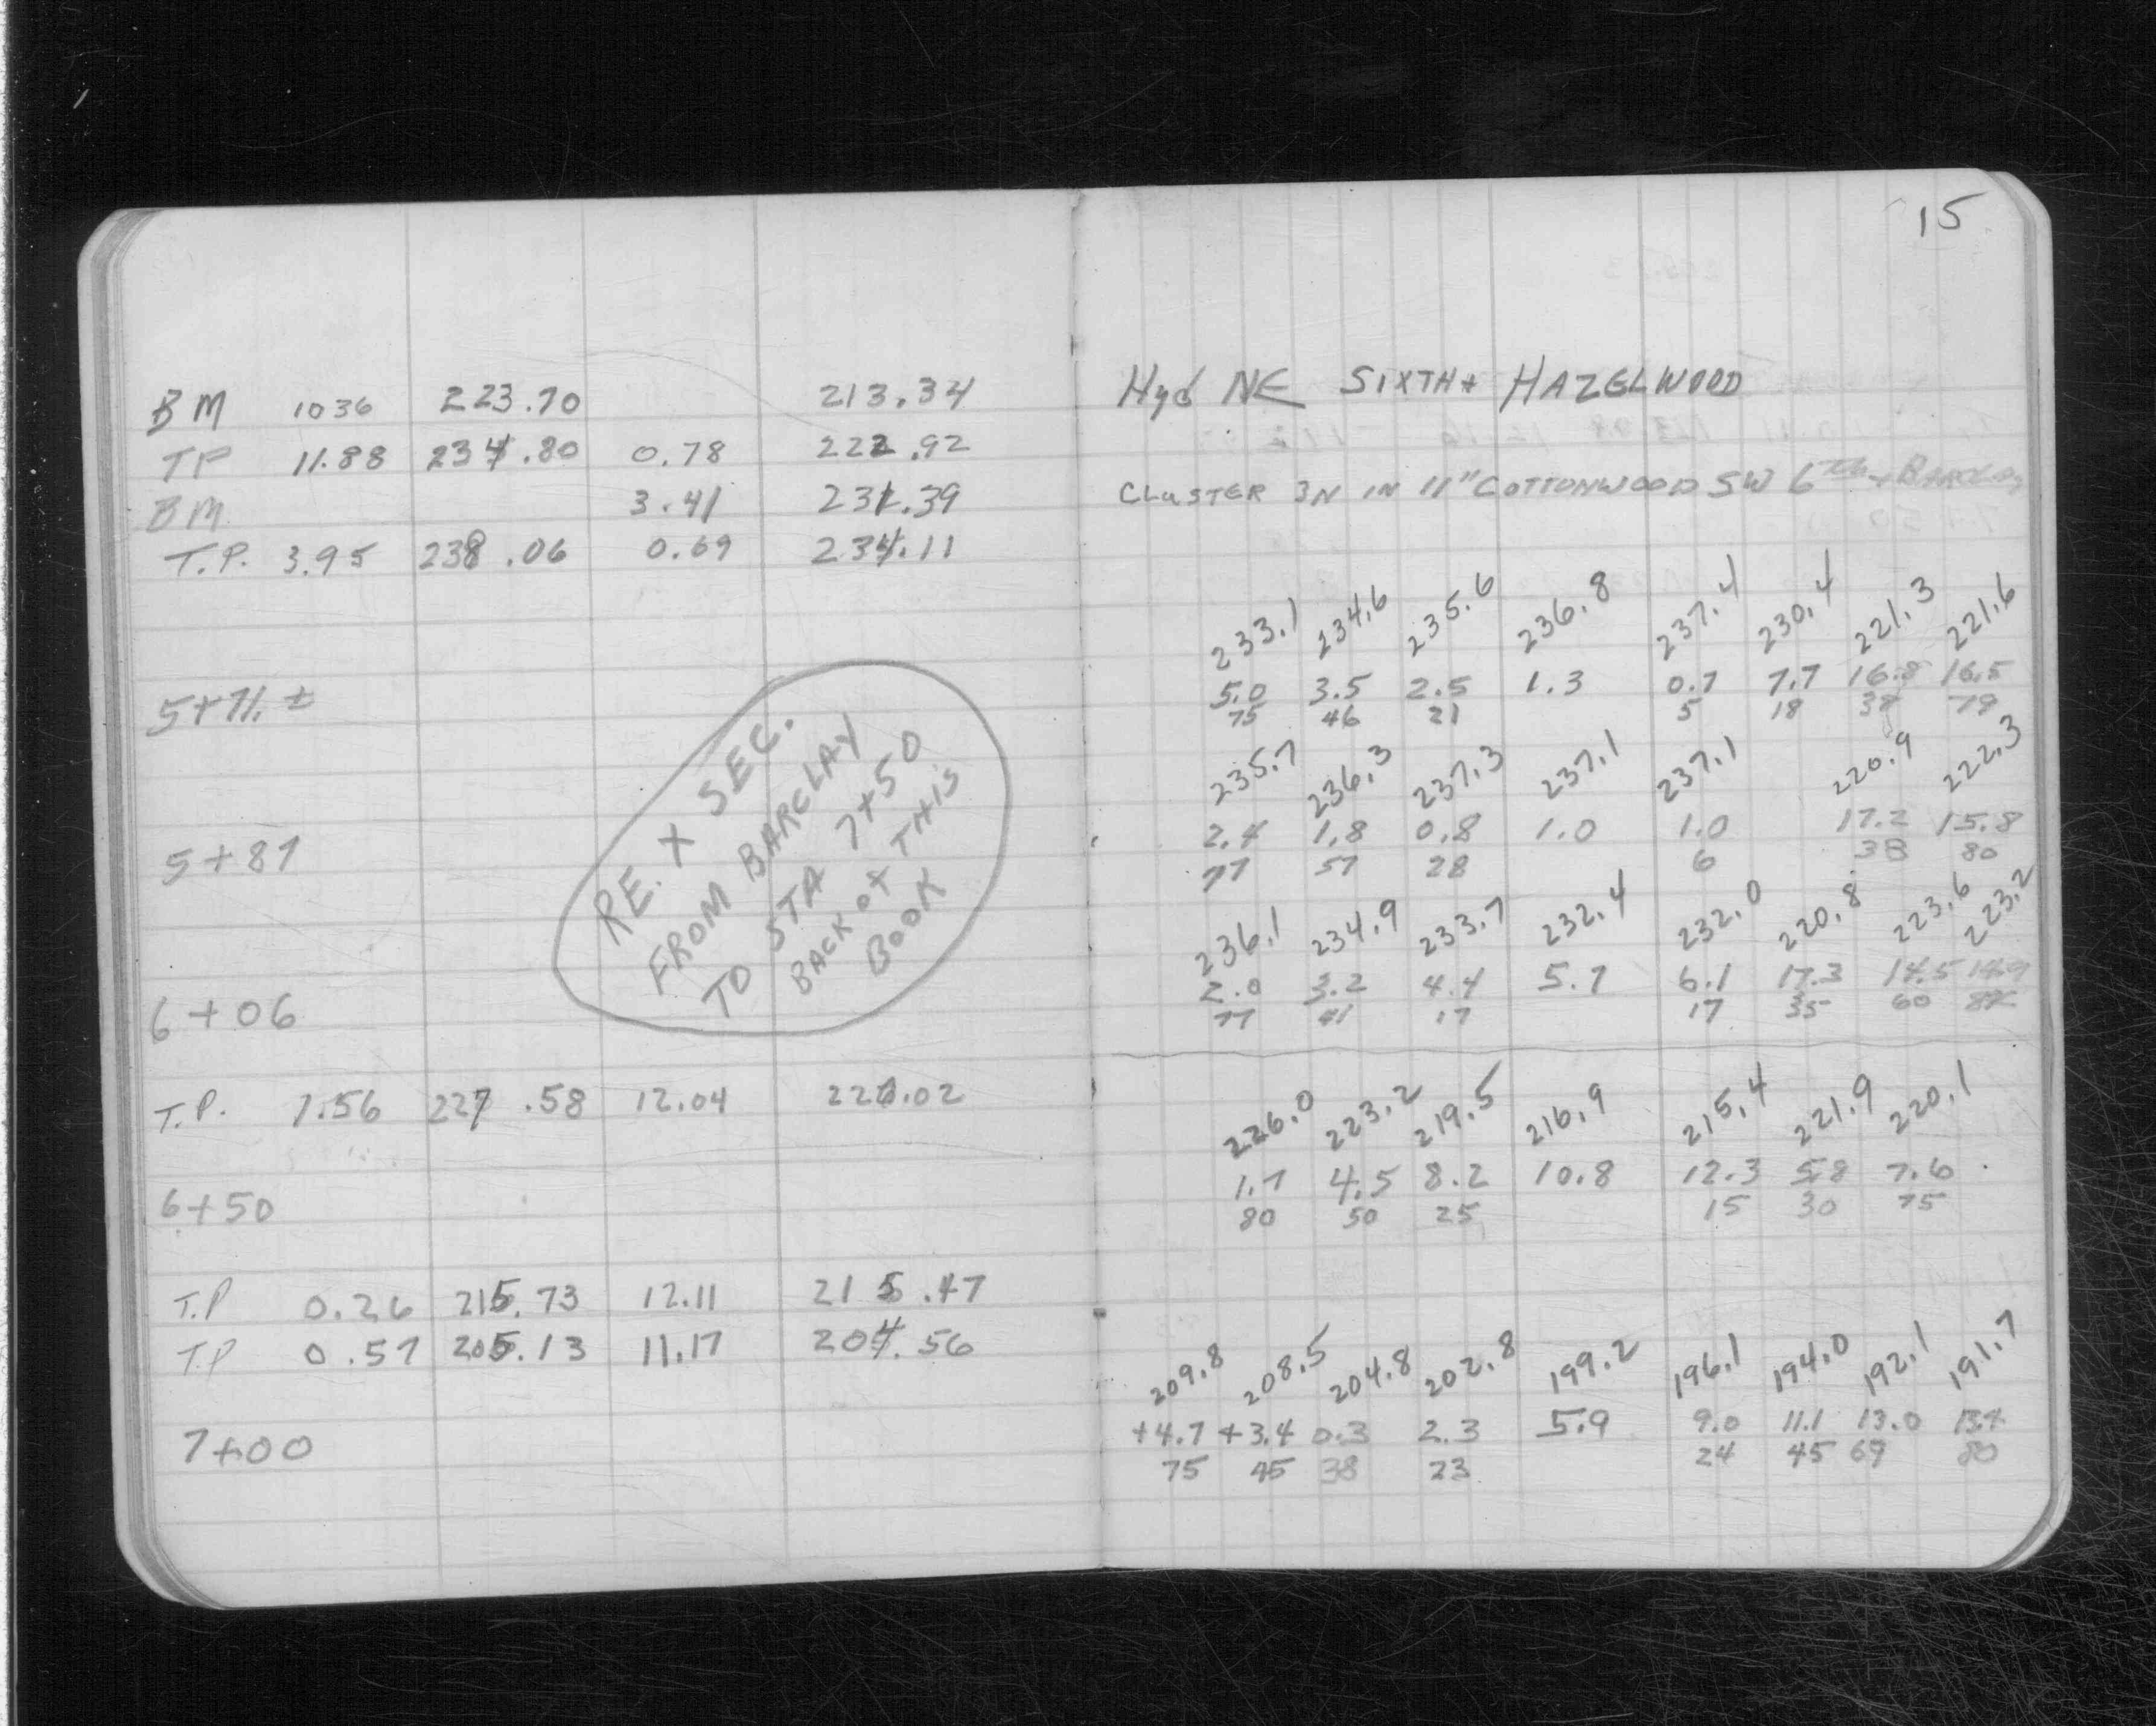 15
BM 1036 223.70 213.34 Hyd NE SIXTH + HAZELWOOD
TP 11.88 234.80 0.78 222.92
BM 3.41 231.39 CLUSTER 3N IN 11" COTTONWOOD SW 6th + BARCLAY
T.P. 3.95 238.06 0.69 234.11
233.1 234.6 235.6 236.8 237.4 230.4 221.3 221.6
5+71. ± 5.0 3.5 2.5 1.3 0.7 7.7 16.8 16.5
75 46 21 5 18 38 79
235.7 236.3 237.3 237.1 237.1 220.9 222.3
5+87 2.4 1.8 0.8 1.0 1.0 17.2 15.8
77 57 28 6 38 80
236.1 234.9 233.7 232.4 232.0 220.8 223.6 223.2
6+06 2.0 3.2 4.4 5.7 6.1 17.3 14.5 14.9
77 41 17 17 35 60
RE. X SEC.
FROM BARCLAY
TO STA 7+50
BACK OF THIS
BOOK
T.P. 1.56 227.58 12.04 226.02
226.0 223.2 219.5 216.9 215.4 221.9 220.1
6+50 1.7 4.5 8.2 10.8 12.3 5.8 7.6
80 50 25 15 30 75
T.P 0.26 215.73 12.11 215.47
T.P 0.57 205.13 11.17 204.56
209.8 208.5 204.8 202.8 199.2 196.1 194.0 192.1 191.7
7+00 +4.7 +3.4 0.3 2.3 5.9 9.0 11.1 13.0 13.4
75 45 38 23 24 45 69 80